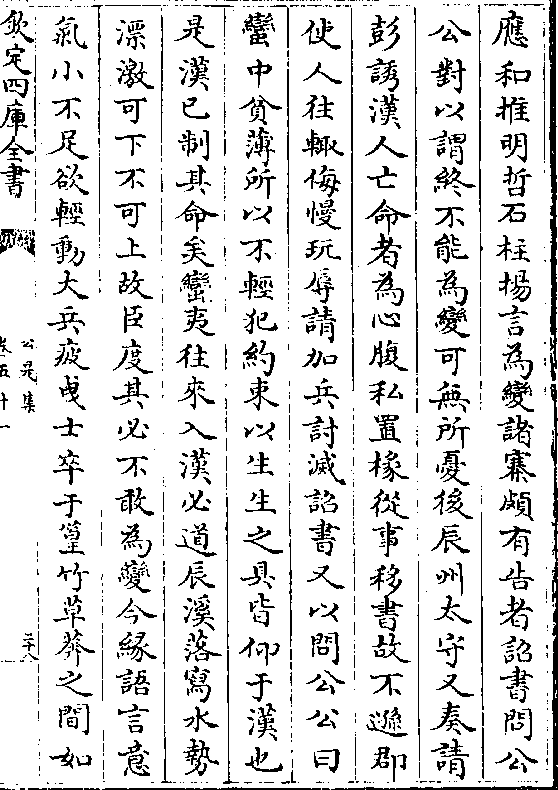 應和推明哲石柱揚言為變諸寨頗有告者詔書問公
公對以謂終不能為變可無所憂後辰州太守又奏請
彭誘漢人亡命者為心腹私置掾從事移書故不遜郡
使人往輙侮慢玩辱請加兵討滅詔書又以問公公曰
蠻中貧薄所以不輕犯約束以生生之具皆仰于漢也
是漢已制其命矣蠻夷往來入漢必道辰溪落寫水勢
漂激可下不可上故臣度其必不敢為變今縁語言意
氣小不足欲輕動大兵疲曵士卒于篁竹草莽之間如
欽定四庫全書
公是集
卷五十一
二十八